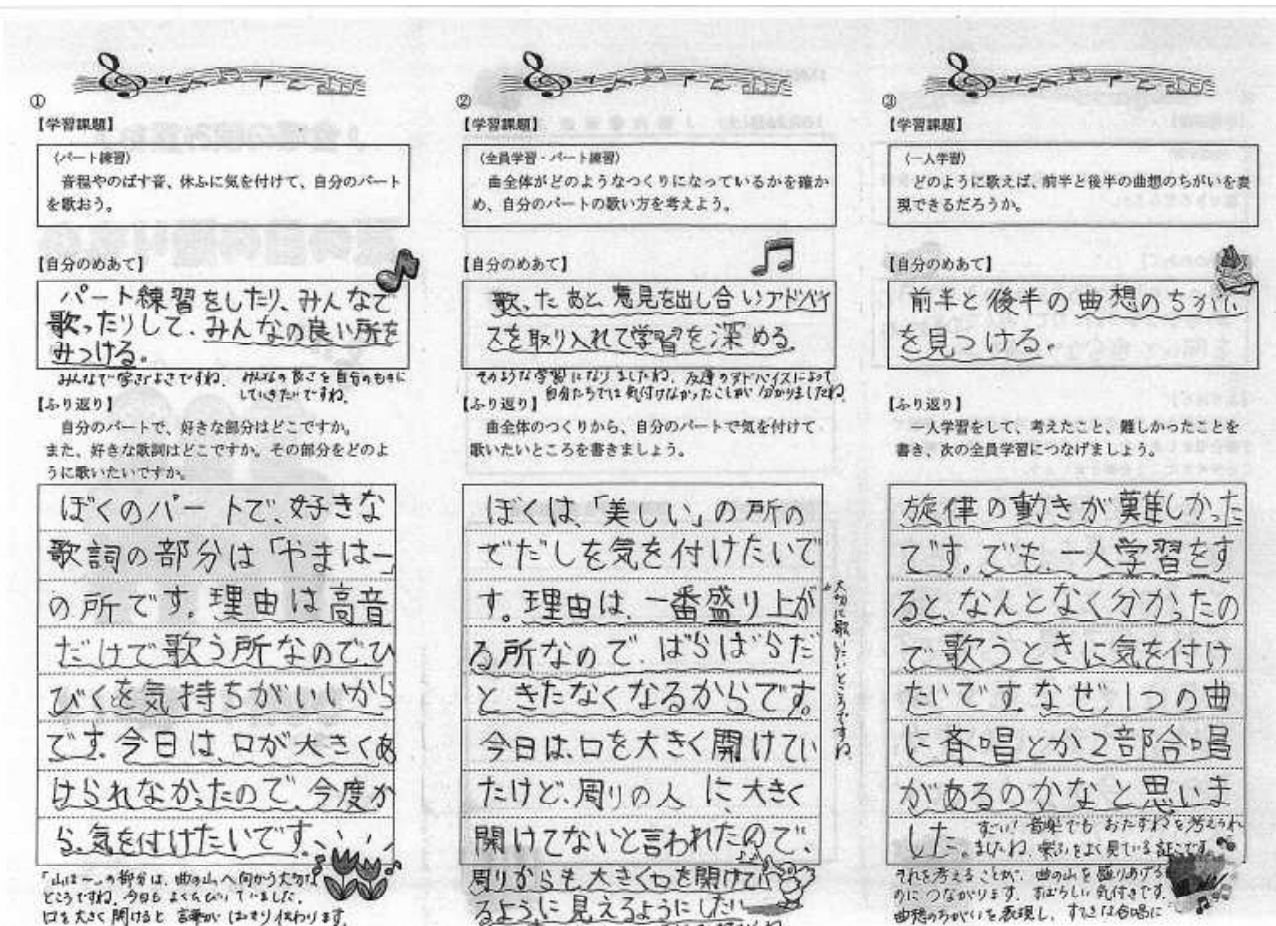 ①
【学習課題】
〈パート練習〉
音程やのばす音、休ふに気を付けて、自分のパート
を歌おう。
【自分のめあて】
パート練習をしたり、みんなで
歌ったりして、みんなの良い所を
みつける。
みんなで学ぶよさですね。みんなの良さを自分のものに
していきたいですね。
【ふり返り】
自分のパートで、好きな部分はどこですか。
また、好きな歌詞はどこですか。その部分をどのよ
うに歌いたいですか。
ぼくのパートで、好きな
歌詞の部分は「やまはー」
の所です。理由は高音
だけで歌う所なのでひ
びくを気持ちがいいから
です。今日は、口が大きくあ
けられなかったので、今度か
ら、気を付けたいです。
「山はー」の部分は、曲の山へ向かう大切な
ところですね。今日もよくひびいていました。
口を大きく開けると言葉がはっきり伝わります。
②
【学習課題】
〈全員学習・パート練習〉
曲全体がどのようなつくりになっているかを確か
め、自分のパートの歌い方を考えよう。
【自分のめあて】
歌ったあと、意見を出し合いアドバイ
スを取り入れて学習を深める。
そのような学習になりましたね。友達のアドバイスによって
自分たちでは気付けなかったことが分かりましたね。
【ふり返り】
曲全体のつくりから、自分のパートで気を付けて
歌いたいところを書きましょう。
ぼくは、「美しい」の所の
でだしを気を付けたいで
す。理由は、一番盛り上が
る所なので、ばらばらだ
ときたなくなるからです。
今日は、口を大きく開けてい
たけど、周りの人に、大きく
開けてないと言われたので、
周りからも大きく口を開けてい
るように見えるようにしたい
大切に歌いたいところですね
③
【学習課題】
〈一人学習〉
どのように歌えば、前半と後半の曲想のちがいを表
現できるだろうか。
【自分のめあて】
前半と後半の曲想のちがい
を見つける。
【ふり返り】
一人学習をして、考えたこと、難しかったことを
書き、次の全員学習につなげましょう。
旋律の動きが難しかった
です。でも、一人学習をす
ると、なんとなく分かったの
で歌うときに気を付け
たいです。なぜ、1つの曲
に斉唱とか2部合唱
があるのかなと思いま
した。
すごい!音楽でもおたずねを考えられ
ましたね。楽ふをよく見ている証こです。
それを考えることが、曲の山を盛りあげる
のにつながります。すばらしい気付きです。
曲想のちがいを表現し、すてきな合唱に